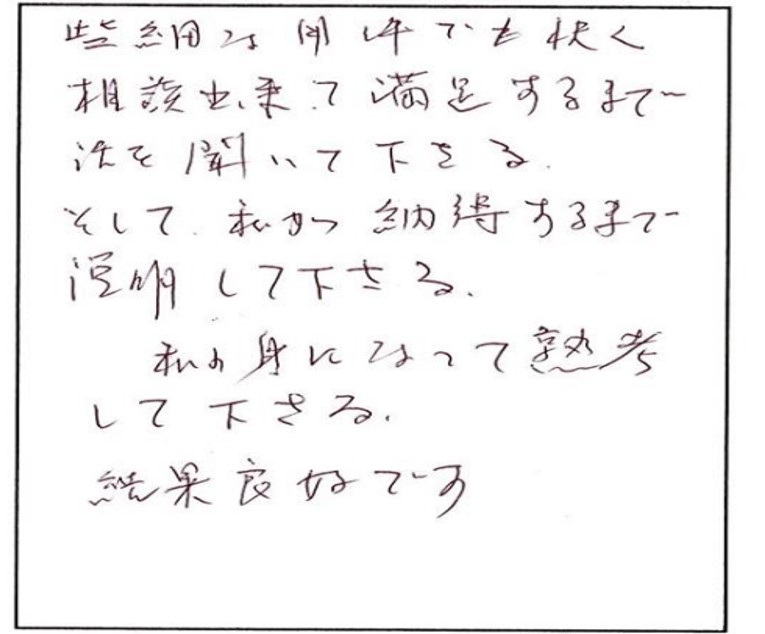 些細な用件でも快く
相談出来て満足するまで
話を聞いて下さる.
そして.私が納得するまで
説明して下さる.
私の身になって熟考
して下さる.
結果良好です